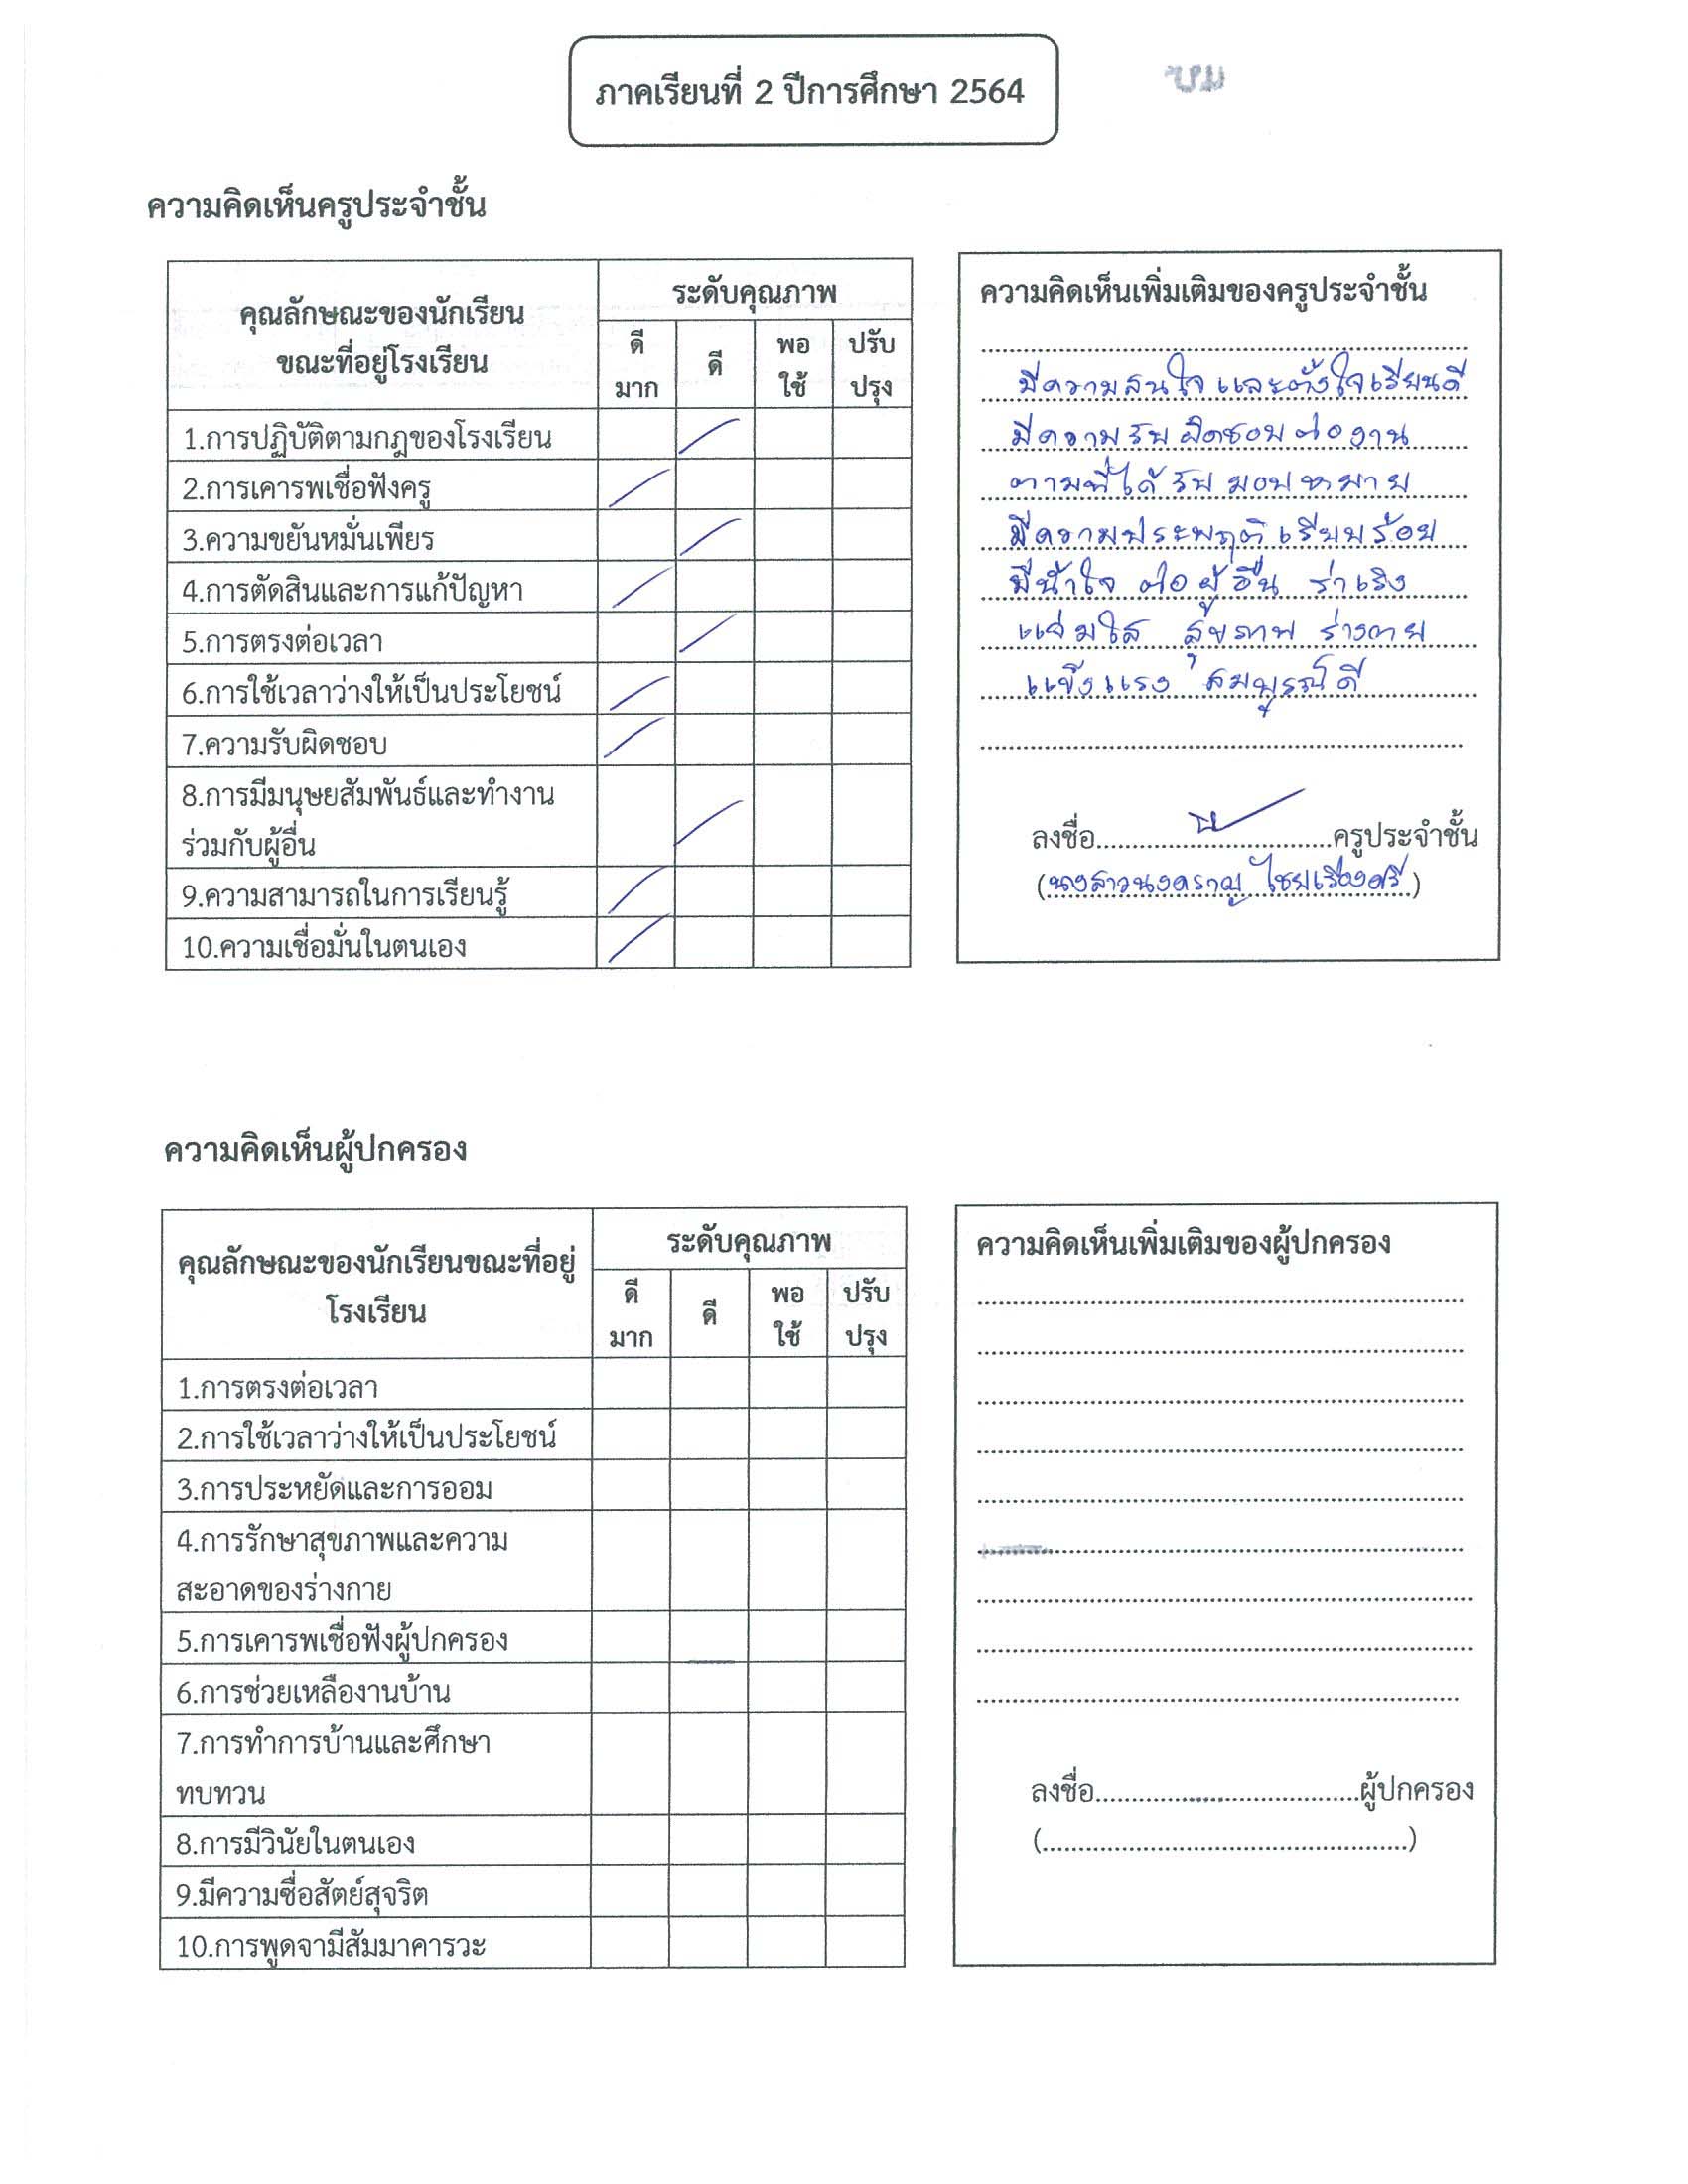 ภาคเรียนที่ 2 ปีการศึกษา 2564
ความคิดเห็นครูประจำชั้น
คุณลักษณะของนักเรียน
ขณะที่อยู่โรงเรียน
ระดับคุณภาพ
ดี
มาก
ดี
พอ
ใช้
ปรับ
ปรุง
1.การปฏิบัติตามกฎของโรงเรียน
2.การเคารพเชื่อฟังครู
3.ความขยันหมั่นเพียร
4.การตัดสินและการแก้ปัญหา
5.การตรงต่อเวลา
6.การใช้เวลาว่างให้เป็นประโยชน์
7.ความรับผิดชอบ
8.การมีมนุษยสัมพันธ์และทำงาน
ร่วมกับผู้อื่น
9.ความสามารถในการเรียนรู้
10.ความเชื่อมั่นในตนเอง
ความคิดเห็นเพิ่มเติมของครูประจำชั้น
มีความสนใจ และตั้งใจเรียนดี
มีความรับผิดชอบต่องาน
ตามที่ได้รับมอบหมาย
มีความประพฤติเรียบร้อย
มีน้ำใจ ต่อผู้อื่น ร่าเริง
แจ่มใส สุขภาพ ร่างกาย
แข็งแรง สมบูรณ์ดี
ลงชื่อ..............................ครูประจำชั้น
(นางสาวนงคราญ ไชยเรืองศรี)
ความคิดเห็นผู้ปกครอง
คุณลักษณะของนักเรียนขณะที่อยู่
โรงเรียน
ระดับคุณภาพ
ดี
มาก
ดี
พอ
ใช้
ปรับ
ปรุง
1.การตรงต่อเวลา
2.การใช้เวลาว่างให้เป็นประโยชน์
3.การประหยัดและการออม
4.การรักษาสุขภาพและความ
สะอาดของร่างกาย
5.การเคารพเชื่อฟังผู้ปกครอง
6.การช่วยเหลืองานบ้าน
7.การทำการบ้านและศึกษา
ทบทวน
8.การมีวินัยในตนเอง
9.มีความซื่อสัตย์สุจริต
10.การพูดจามีสัมมาคารวะ
ความคิดเห็นเพิ่มเติมของผู้ปกครอง
ลงชื่อ..................................ผู้ปกครอง
(................................................)